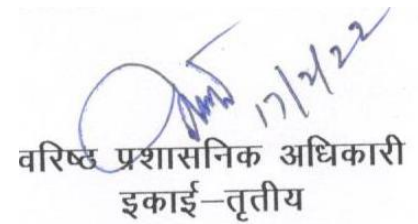 17/2/22
वरिष्ठ प्रशासनिक अधिकारी
इकाई–तृतीय